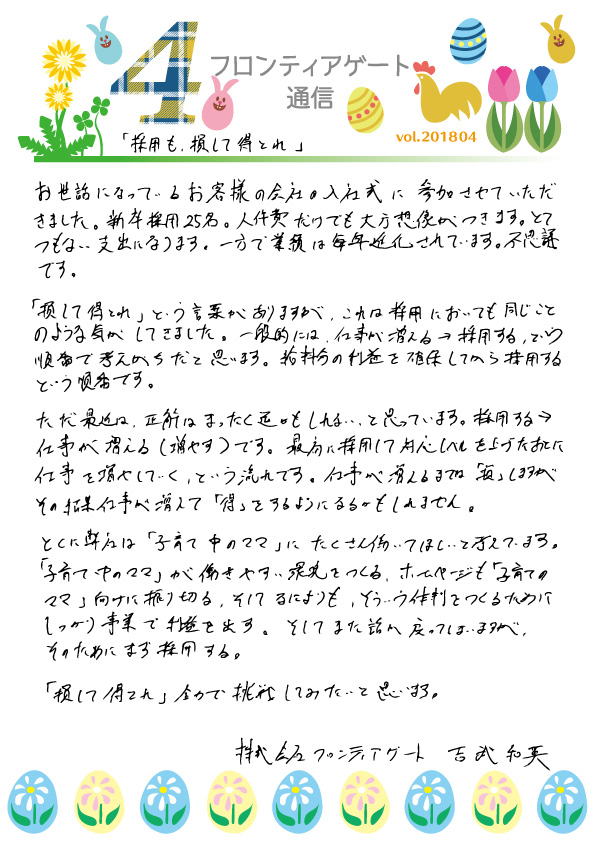 4
フロンティアゲート
通信
vol.201804
「採用も、損して得とれ」
お世話になっているお客様の会社の入社式に参加させていただ
きました。新卒採用25名。人件費だけでも大方想像がつきます。とて
つもない支出になります。一方で業績は毎年進化されています。不思議
です。
「損して得とれ」という言葉がありますが、これは採用においても同じこと
のような気がしてきました。一般的には、仕事が増える→採用する、という
順番で考えがちだと思います。給料分の利益を確保してから採用する
という順番です。
ただ最近は、正解はまったく逆かもしれない、と思っています。採用する→
仕事が増える(増やす)です。最初に採用して対応レベルを上げたあとに
仕事を増やしていく、という流れです。仕事が増えるまでは「損」しますが
その結果仕事が増えて「得」をするようになるかもしれません。
とくに弊社は「子育て中のママ」にたくさん働いてほしいと考えています。
「子育て中のママ」が働きやすい環境をつくる、ホームページも「子育ての
ママ」向けに振り切る、そしてなによりも、そういう体制をつくるために
しっかり事業で利益を出す。そしてまた話へ戻ってしまいますが、
そのためにまず採用する。
「損して得とれ」全力で挑戦してみたいと思います。
株式会社フロンティアゲート 吉武和英